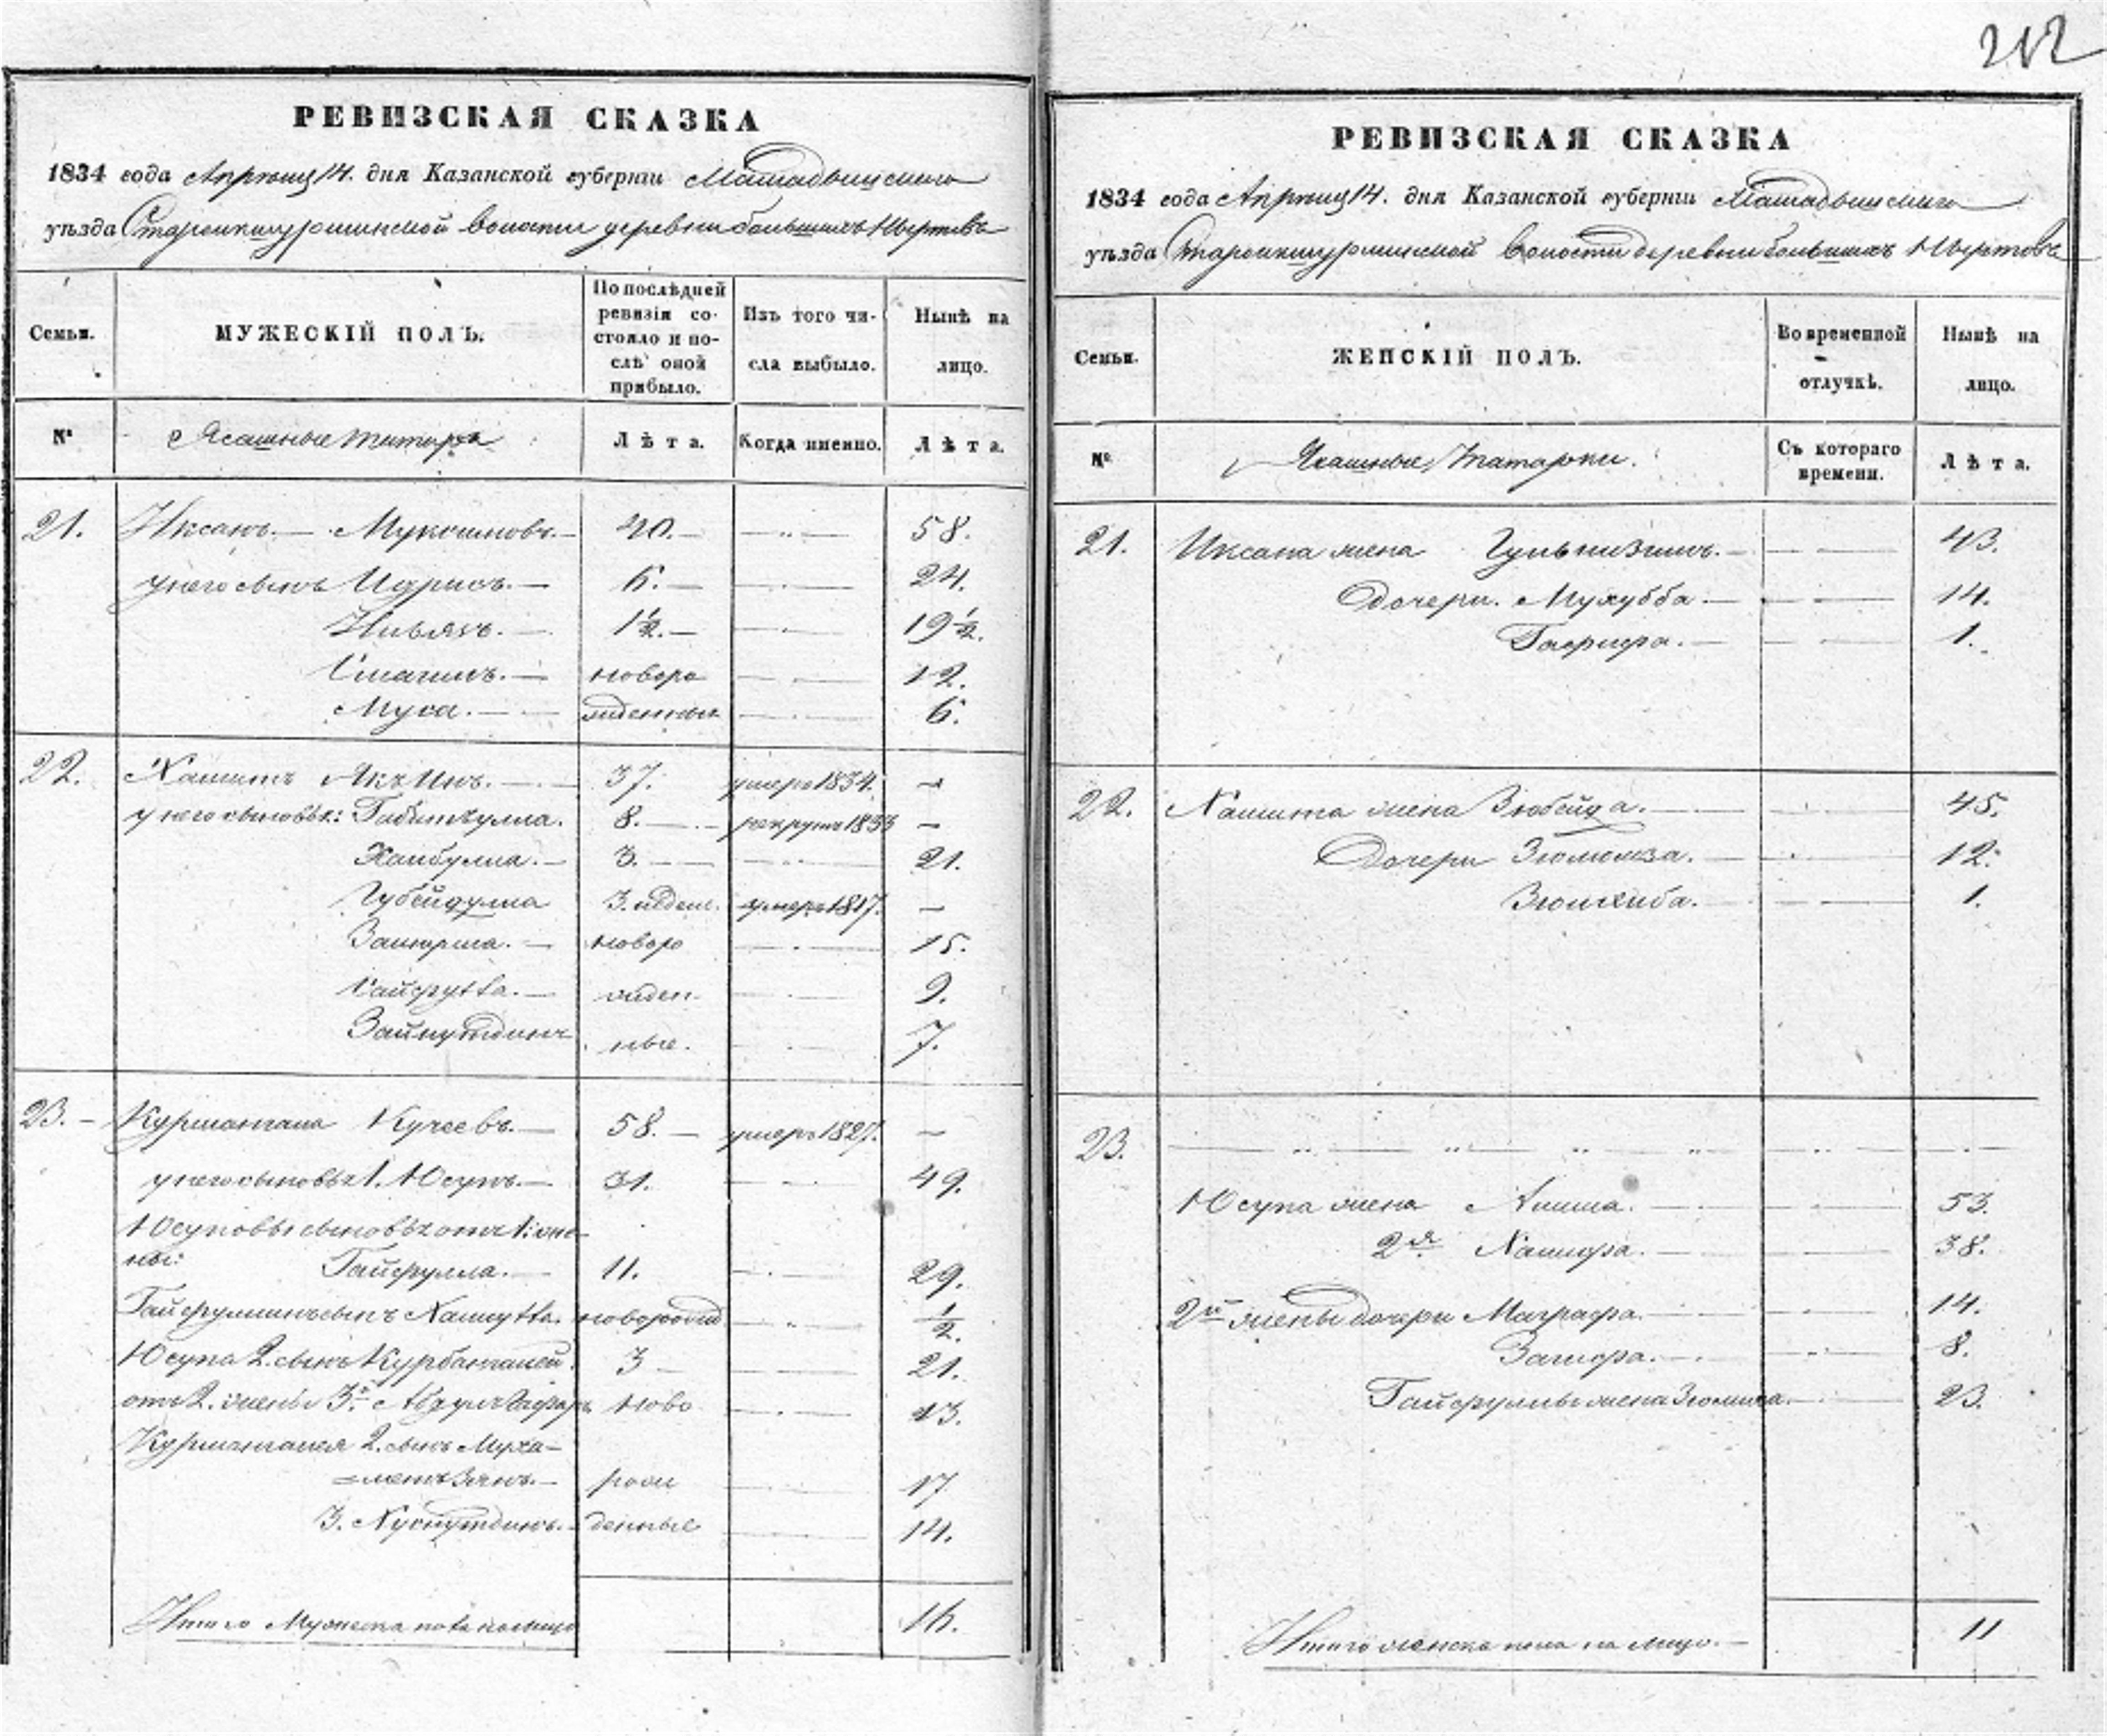 212
РЕВИЗСКАЯ СКАЗКА
1834 года Апреля 14. дня Казанской губерніи Мамадышскаго
уѣзда Старокишурминской волости деревни большихъ Ныртовъ
Семьи.
МУЖЕСКІЙ ПОЛЪ.
По послѣдней ревизіи состояло и послѣ оной прибыло.
Изъ того числа выбыло.
Нынѣ на лицо.
№
Ясашные татара
Лѣта.
Когда именно.
Лѣта.
21. Иксанъ. — Мукминовъ. — 40. — 58.
у него сынъ Идрисъ. — 6. — 24.
Ильясъ. — 1½. — 19½.
Смагилъ. — новоро 12.
Муса. — жденные 6.
22. Хамитъ Якъинъ. — 37. умеръ 1834. —
у него сыновья: Габиткулла. 8. — рекрутъ 1833 —
Хайбулла. — 3. — 21.
Губейдулла 3. недел. умеръ 1817. —
— новоро 15.
Сайфутта. — жден. 9.
Зайнутдинъ ные. 7.
23. — Курмангали Кучеевъ. — 58. — умеръ 1827. —
у него сыновья 1. Юсупъ. — 31. 49.
Юсуповы сыновья отъ 1: же-
ны: Гайфулла. — 11. 29.
Гайфуллинъ сынъ Хамутта. новорожд ½.
Юсупа 2. сынъ Курбангалей. 3 — 21.
отъ 2. жены 3й Абдулгафаръ ново 13.
Курмангалея 2. сынъ Муха-
=метзянъ. — рож 17
3. Хуснутдинъ. — денные 14.
Итого Мужеска пола налицо 16.
РЕВИЗСКАЯ СКАЗКА
1834 года Апреля 14. дня Казанской губерніи Мамадышскаго
уѣзда Старокишурминской волости деревни большихъ Ныртовъ
Семьи.
ЖЕНСКІЙ ПОЛЪ.
Во временной отлучкѣ.
Нынѣ на лицо.
№.
Ясашные Татарки.
Съ котораго времени.
Лѣта.
21. Иксана жена — 43.
Дочери. Мухубба — 14.
Гафифа. — 1.
22. Хамита жена Зюбейда. — 45.
Дочери — 12.
— 1.
23.
Юсупа жена — 53.
2я. Хамифа. — 38.
2й жены дочери Маграфа. — 14.
— 8.
Гайфуллы жена — 23.
Итого женска пола на лицо. — 11